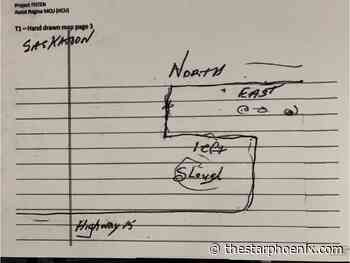 Project FISTEN
Assist Regina MCU (HCU)
T1 – Hand drawn map page 3
SASKATOON
NORTH
EAST
left
Slough
Highway 15
thestarphoenix.com